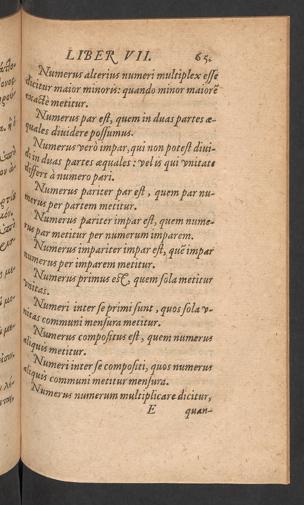 LIBER VII. 65.
Numerus alterius numeri multiplex esse
dicitur maior minoris: quando minor maiorē
exactè metitur.
Numerus par est, quem in duas partes æ-
quales dividere possumus.
Numerus verò impar, qui non potest divi-
di in duas partes æquales: vel is qui vnitate
differt à numero pari.
Numerus pariter par est, quem par nu-
merus per partem metitur.
Numerus pariter impar est, quem nume-
rus par metitur per numerum imparem.
Numerus impariter impar est, quē impar
numerus per imparem metitur.
Numerus primus est, quem sola metitur
vnitas.
Numeri inter se primi sunt, quos sola v-
nitas communi mensura metitur.
Numerus compositus est, quem numerus
aliquis metitur.
Numeri inter se compositi, quos numerus
aliquis communi metitur mensura.
Numerus numerum multiplicare dicitur,
E quan-